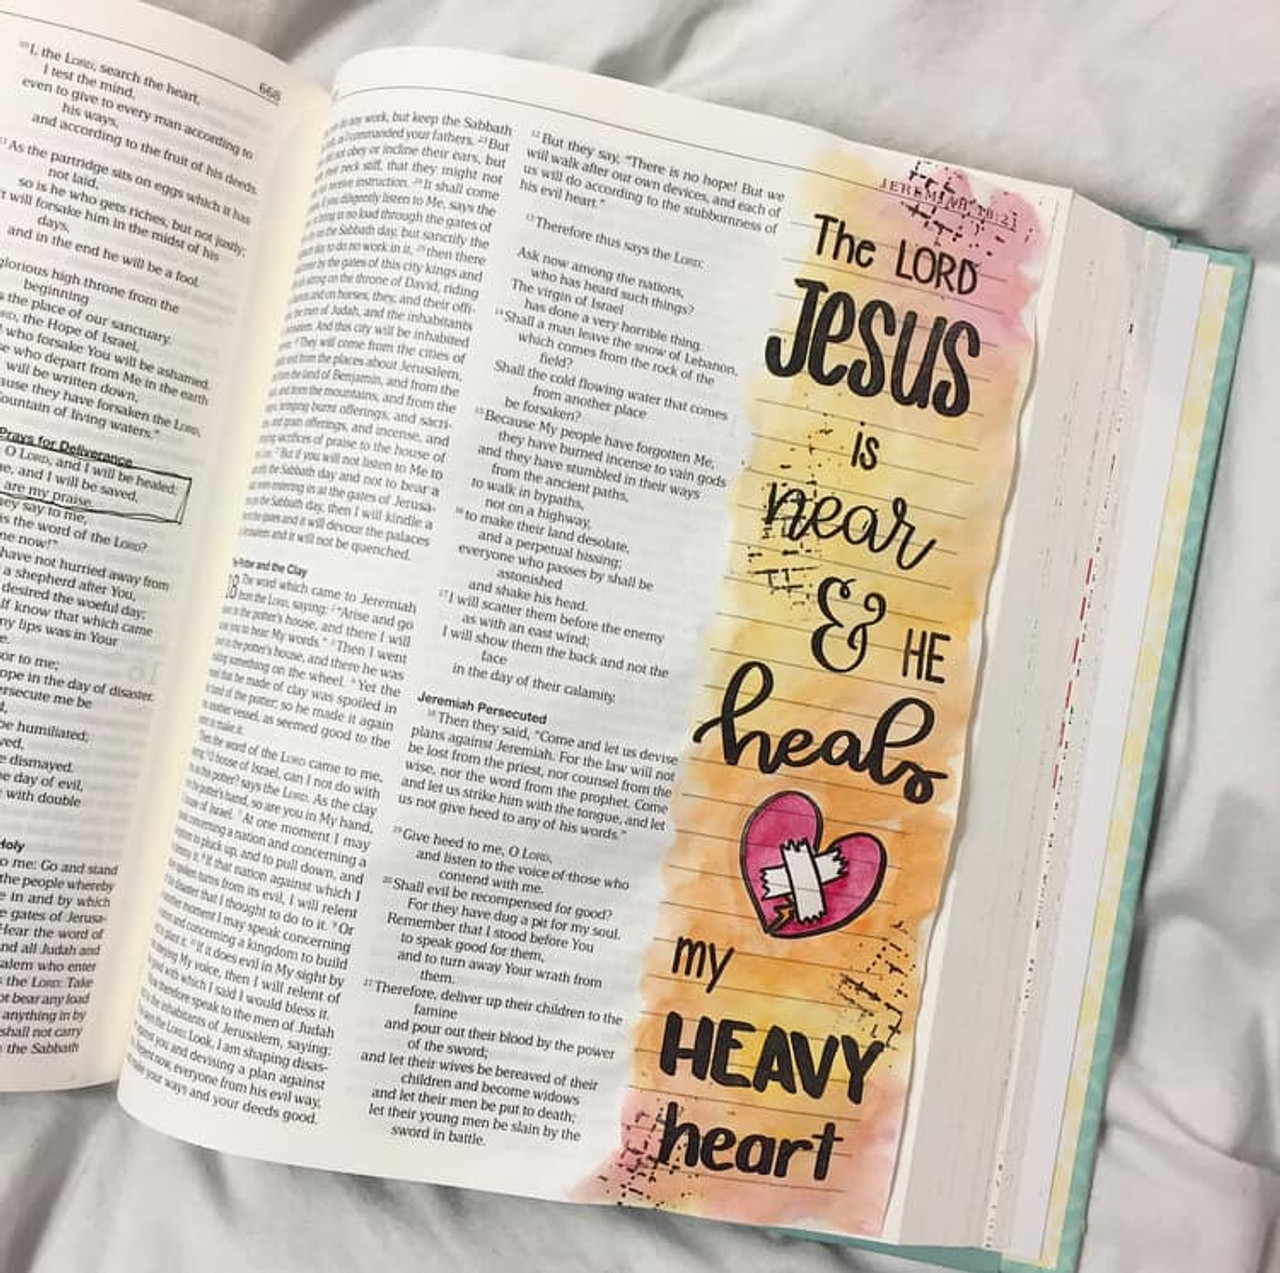 ¹⁰I, the LORD, search the heart,
I test the mind,
even to give to every man according to
his ways,
and according to the fruit of his deeds.
¹¹As the partridge sits on eggs which it has
not laid,
so is he who gets riches, but not justly;
will forsake him in the midst of his
days,
and in the end he will be a fool.
glorious high throne from the
beginning
the place of our sanctuary.
the Hope of Israel,
who forsake You will be ashamed.
who depart from Me in the earth
will be written down,
they have forsaken the LORD,
fountain of living waters."
Prays for Deliverance
O LORD, and I will be healed;
and I will be saved,
are my praise.
they say to me,
is the word of the LORD?
now!"
have not hurried away from
a shepherd after You,
desired the woeful day;
know that which came
my lips was in Your
to me;
hope in the day of disaster.
persecute me be
be humiliated;
be dismayed.
day of evil,
with double
Holy
to me: Go and stand
the people whereby
in and by which
gates of Jerusa-
Hear the word of
and all Judah and
who enter
the LORD: Take
bear any load
anything in by
shall not carry
the Sabbath
668
any work, but keep the Sabbath
commanded your fathers. ²³But
obey or incline their ears, but
neck stiff, that they might not
receive instruction. ²⁴It shall come
diligently listen to Me, says the
in no load through the gates of
the Sabbath day, but sanctify the
to do no work in it, ²⁵then there
by the gates of this city kings and
sitting on the throne of David, riding
and on horses, they, and their offi-
men of Judah, and the inhabitants
And this city will be inhabited
They will come from the cities of
and from the places about Jerusalem,
the land of Benjamin, and from the
and from the mountains, and from the
bringing burnt offerings, and sacri-
and grain offerings, and incense, and
sacrifices of praise to the house of
But if you will not listen to Me to
the Sabbath day and not to bear a
entering in at the gates of Jerusa-
the Sabbath day, then I will kindle a
gates and it will devour the palaces
and it will not be quenched.
Potter and the Clay
18 The word which came to Jeremiah
from the LORD, saying: ²"Arise and go
to the potter's house, and there I will
you to hear My words." ³Then I went
to the potter's house, and there he was
something on the wheel. ⁴Yet the
that he made of clay was spoiled in
hand of the potter; so he made it again
another vessel, as seemed good to the
make it.
Then the word of the LORD came to me,
house of Israel, can I not do with
this potter? says the LORD. As the clay
potter's hand, so are you in My hand,
house of Israel. ⁷At one moment I may
concerning a nation and concerning a
to pluck up, and to pull down, and
if that nation against which I
spoken turns from its evil, I will relent
disaster that I thought to do to it. ⁹Or
another moment I may speak concerning
and concerning a kingdom to build
if it does evil in My sight by
obeying My voice, then I will relent of
with which I said I would bless it.
therefore speak to the men of Judah
the inhabitants of Jerusalem, saying:
the LORD: Look, I am shaping disas-
you and devising a plan against
now, everyone from his evil way,
your ways and your deeds good.
¹²But they say, "There is no hope! But we
will walk after our own devices, and each of
us will do according to the stubbornness of
his evil heart."
¹³Therefore thus says the LORD:
Ask now among the nations,
who has heard such things?
The virgin of Israel
has done a very horrible thing.
¹⁴Shall a man leave the snow of Lebanon,
which comes from the rock of the
field?
Shall the cold flowing water that comes
from another place
be forsaken?
¹⁵Because My people have forgotten Me,
they have burned incense to vain gods
and they have stumbled in their ways
from the ancient paths,
to walk in bypaths,
not on a highway,
¹⁶to make their land desolate,
and a perpetual hissing;
everyone who passes by shall be
astonished
and shake his head.
¹⁷I will scatter them before the enemy
as with an east wind;
I will show them the back and not the
face
in the day of their calamity.
Jeremiah Persecuted
¹⁸Then they said, "Come and let us devise
plans against Jeremiah. For the law will not
be lost from the priest, nor counsel from the
wise, nor the word from the prophet. Come
and let us strike him with the tongue, and let
us not give heed to any of his words."
¹⁹Give heed to me, O LORD,
and listen to the voice of those who
contend with me.
²⁰Shall evil be recompensed for good?
For they have dug a pit for my soul.
Remember that I stood before You
to speak good for them,
and to turn away Your wrath from
them.
²¹Therefore, deliver up their children to the
famine
and pour out their blood by the power
of the sword;
and let their wives be bereaved of their
children and become widows
and let their men be put to death;
let their young men be slain by the
sword in battle.
JEREMIAH 18:21
The LORD
JESUS
is
near
& HE
heals
my
HEAVY
heart